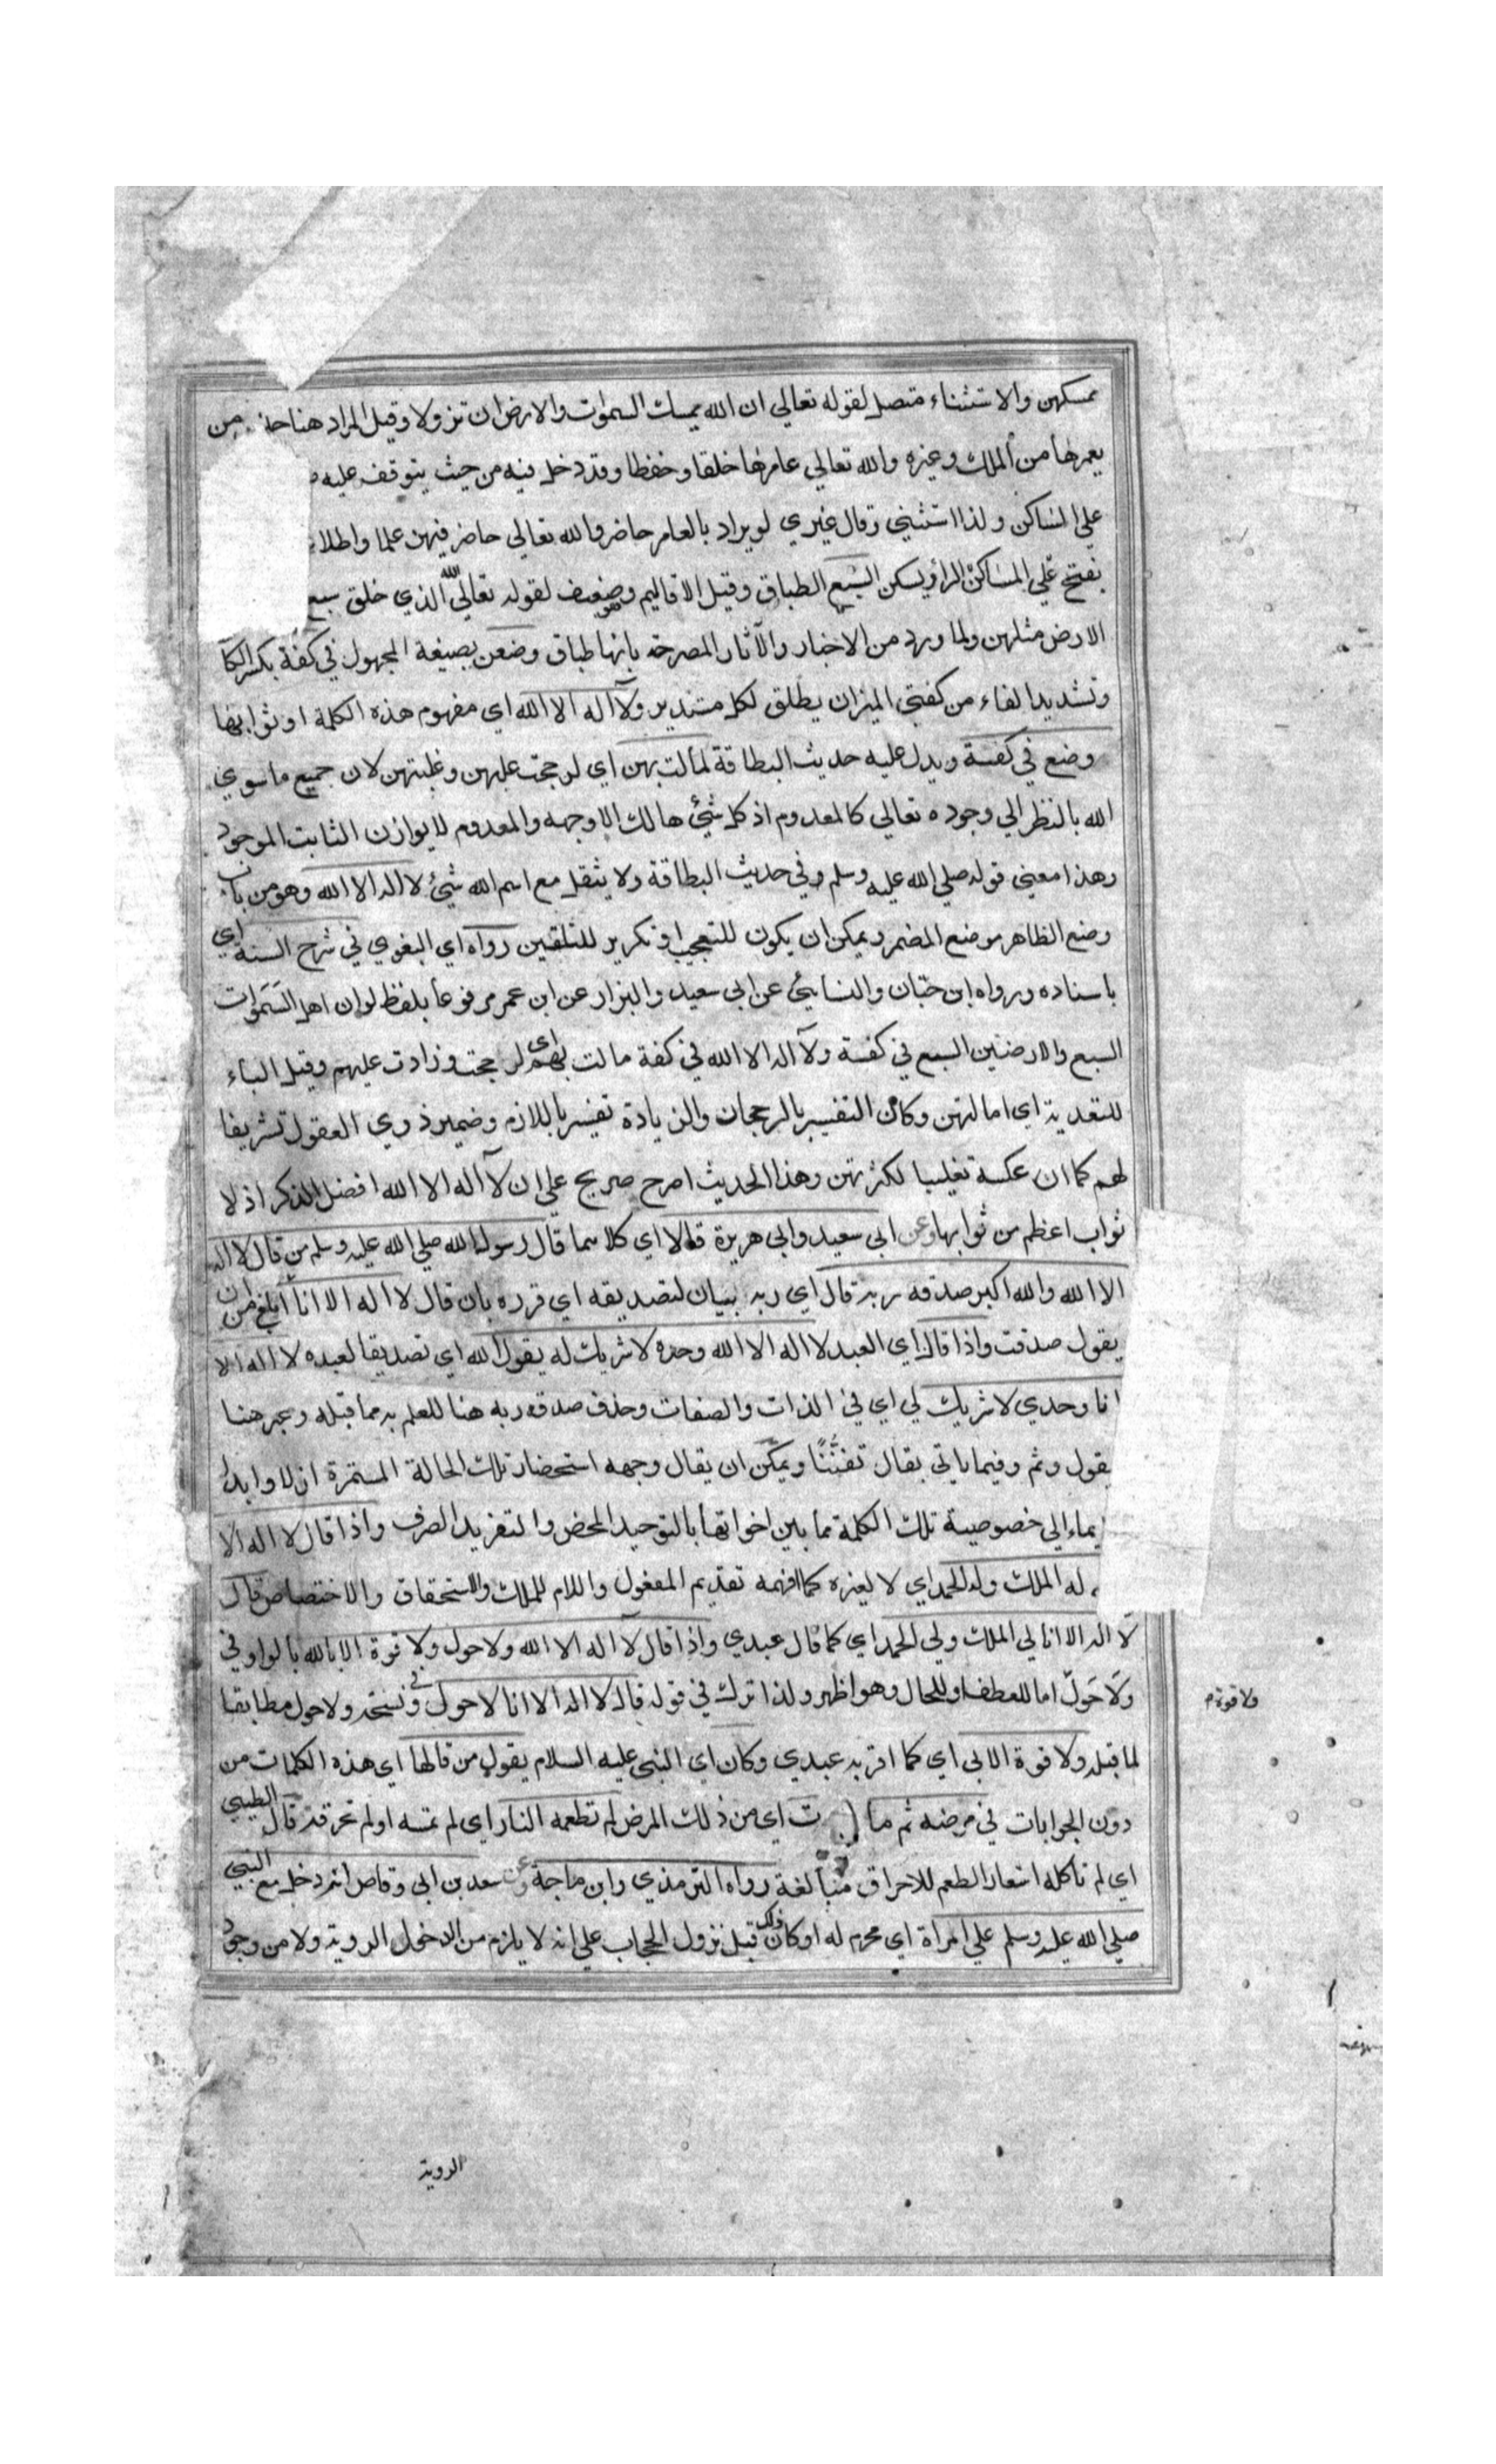 ممسكهن والاستثناء متصل لقوله تعالي ان الله يمسك السموات والارض ان تزولا وقيل المراد هنا من
يعمرها من الملك وغيره والله تعالي عامرها خلقا وحفظا وقد دخل فيه من حيث يتوقف عليه
علي الساكن ولذا استثني وقال غيري لو يراد بالعامر حاضر والله تعالي حاضر فيهن علما واطلا
بفتح الرا ويسكن السبع الطباق وقيل الاقاليم وهو ضعيف لقوله تعالي الله الذي خلق سبع
الارض مثلهن ولما ورد من الاخبار والآثار المصرحة بانها طباق وضعن بصيغة المجهول في كفة بكسر الكا
وتشديد الفاء من كفتي الميزان يطلق لكل مستدير ولآ اله الا الله اي مفهوم هذه الكلمة او ثوابها
وضع في كفة ويدل عليه حديث البطاقة لمالت بهن اي لرجحت عليهن وغلبتهن لان جميع ما سوي
الله بالنظر الي وجوده تعالي كالمعدوم اذ كل شيء هالك الا وجهه والمعدوم لا يوازن الثابت الموجود
وهذا معني قوله صلي الله عليه وسلم وفي حديث البطاقة ولا يثقل مع اسم الله شيء لا اله الا الله وهو من باب
وضع الظاهر موضع المضمر ويمكن ان يكون للتعجب او تكرير للتلقين رواه اي البغوي في شرح السنة اي
باسناده ورواه ابن حبّان والنسائي عن ابي سعيد والبزار عن ابن عمر مرفوعا بلفظ لو ان اهل السموات
السبع والارضين السبع في كفة ولآ اله الا الله في كفة مالت بهم اي لرجحت وزادت عليهم وقيل الباء
للتعدية اي امالتهن وكأن التفسير بالرجحان والزيادة تفسير باللازم وضمير ذوي العقول تشريفا
لهم كما ان عكسه تغليبا لكثرتهن وهذا الحديث اصرح صريح علي ان لآ اله الا الله افضل الذكر اذ لا
ثواب اعظم من ثوابها وعن ابي سعيد وابي هريرة قالا اي كلاهما قال رسول الله صلي الله عليه وسلم من قال لا اله
الا الله والله اكبر صدقه ربه قال اي ربه بيان لتصديقه اي قرره بان قال لا اله الا انا ابلغ من ان
يقول صدقت واذا قال اي العبد لا اله الا الله وحده لا شريك له يقول الله اي تصديقا لعبده لا اله الا
انا وحدي لا شريك لي اي في الذات والصفات وحذف صدقه ربه هنا للعلم به مما قبله وعبر هنا
بقول وثم وفيما ياتي بقال تفننًا ويمكن ان يقال وجهه استحضار تلك الحالة المستمرة ازلا وابدا
يماء الي خصوصية تلك الكلمة ما بين اخواتها بالتوحيد المحض والتفريد الصرف واذا قال لا اله الا
له الملك وله الحمد اي لا لغيره كما افهمه تقديم المفعول واللام للملك والاستحقاق والاختصاص قال
لا اله الا انا لي الملك ولي الحمد اي كما قال عبدي واذا قال لآ اله الا الله ولا حول ولا قوة الا بالله بالواو في
ولا حول اما للعطف او للحال وهو اظهر ولذا ترك في قوله قال لا اله الا انا لا حول وفي نسخة ولا حول مطابقا
ولا قوة م
لما قبله ولا قوة الا بي اي كما اقر به عبدي وكان اي النبي عليه السلام يقول من قالها اي هذه الكلمات من
دون الجوابات في مرضه ثم مات اي من ذلك المرض لم تطعمه النار اي لم تمسه او لم تحرقه قال الطيبي
اي لم تأكله استعار الطعم للاحراق مبالغة رواه الترمذي وابن ماجة وعن سعد بن ابي وقاص انه دخل مع النبي
صلي الله عليه وسلم علي امرأة اي محرم له او كان ذلك قبل نزول الحجاب علي انه لا يلزم من الدخول الروية ولا من وجود
الروية